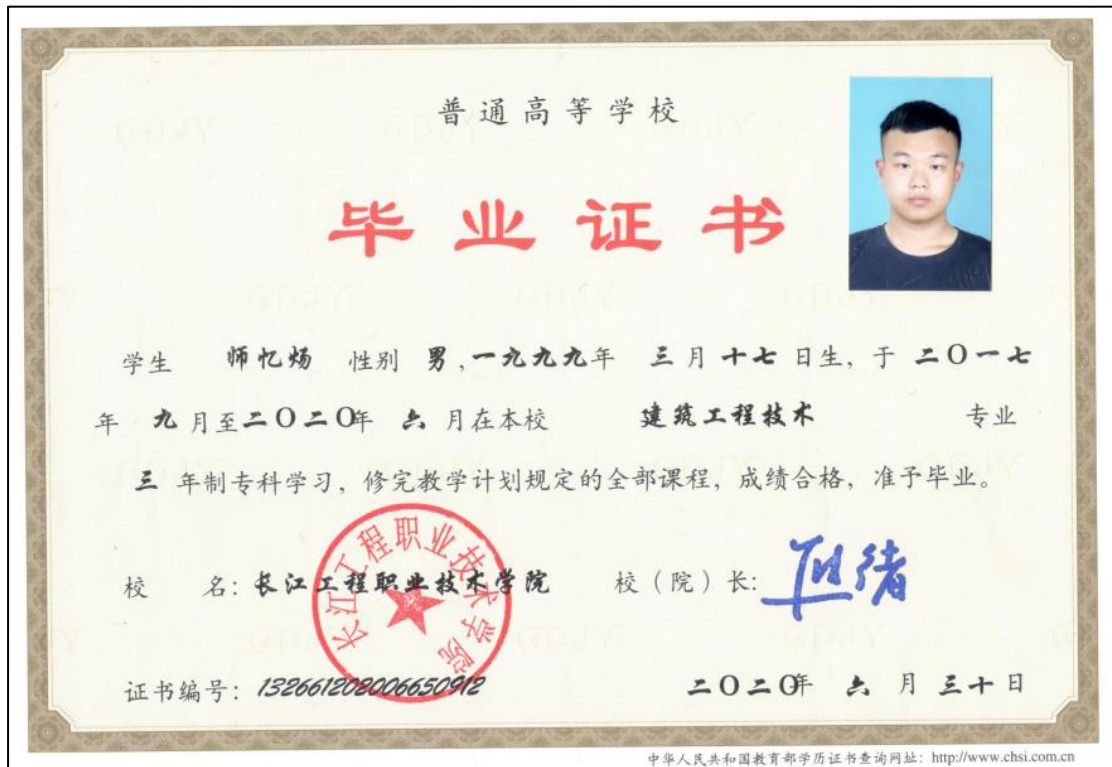 普通高等学校
毕业证书
学生 师忆炀 性别 男,一九九九年 三月十七日生,于 二〇一七
年 九月至二〇二〇年 六月在本校 建筑工程技术 专业
三 年制专科学习,修完教学计划规定的全部课程,成绩合格,准予毕业。
长江工程职业技术学院
校 名:长江工程职业技术学院 校(院)长:
证书编号:132661202006650912 二〇二〇年 六月三十日
中华人民共和国教育部学历证书查询网址:http://www.chsi.com.cn